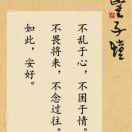 丰子恺
不乱于心，不困于情。
不畏将来，不念过往。
如此，安好。